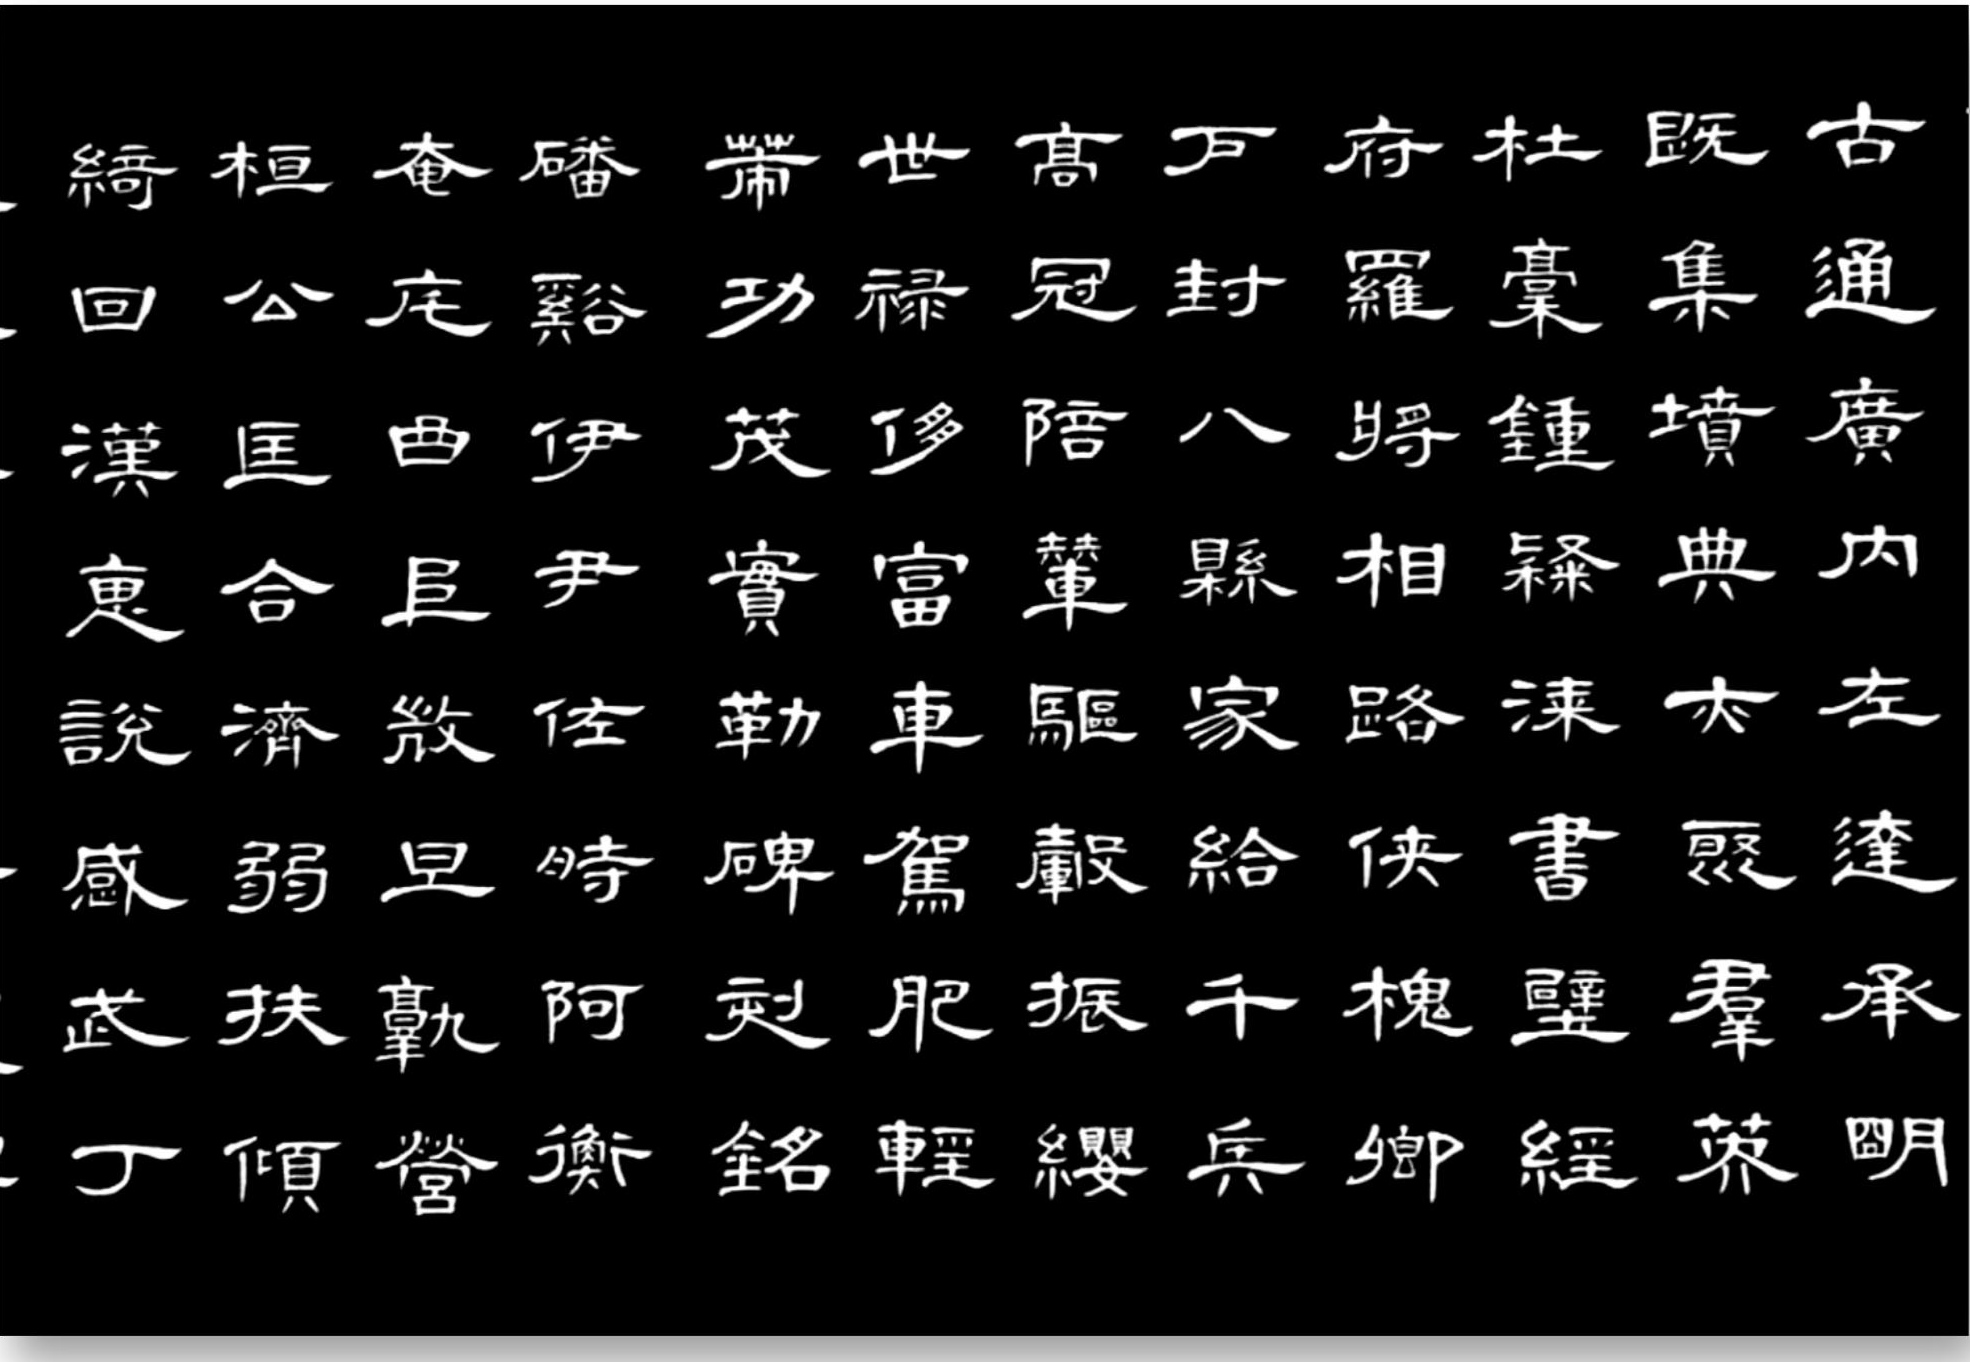 古通廣内左達承明
既集墳典亦聚羣英
杜稾鍾隸漆書壁經
府羅將相路俠槐卿
户封八縣家給千兵
髙冠陪輦驅轂振纓
世禄侈富車駕肥輕
策功茂實勒碑刻銘
磻谿伊尹佐時阿衡
奄宅曲阜微旦孰營
桓公匡合濟弱扶傾
綺回漢惠說感武丁